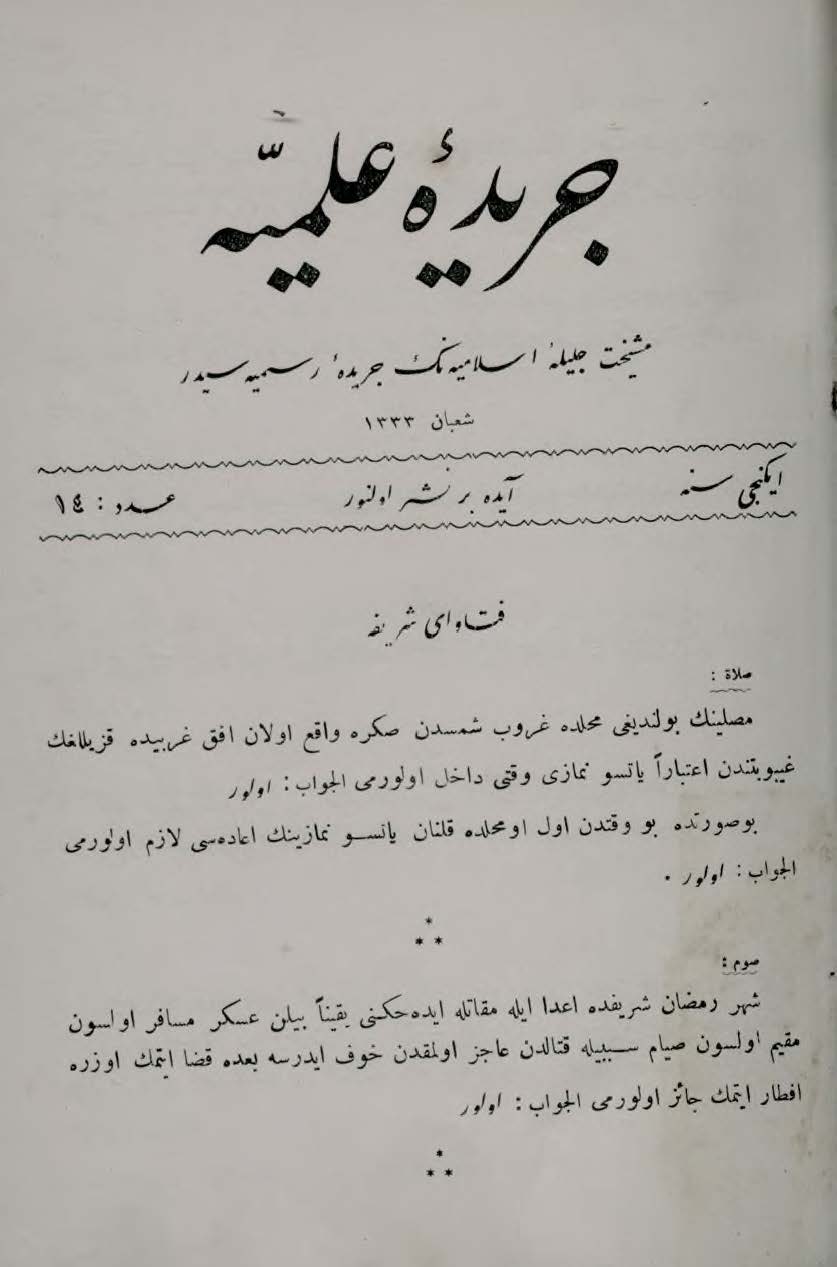 جريدۀ علميّه
مشيخت جليلۀ اسلاميه نك جريدۀ رسميه سيدر
شعبان ١٣٣٣
ايكنجى سنه آيده بر نشر اولنور عدد : ١٤
فتاواى شريفه
صلاة :
مصلينك بولنديغى محلده غروب شمسدن صكره واقع اولان افق غربيده قزيللغك
غيبوبتندن اعتباراً ياتسو نمازى وقتى داخل اولورمى الجواب : اولور
بوصورتده بو وقتدن اول اومحلده قلنان ياتسو نمازينك اعاده‌سى لازم اولورمى
الجواب : اولور .
*
* *
صوم :
شهر رمضان شريفده اعدا ايله مقاتله ايده‌جكنى يقيناً بيلن عسكر مسافر اولسون
مقيم اولسون صيام سببيله قتالدن عاجز اولمقدن خوف ايدرسه بعده قضا ايتمك اوزره
افطار ايتمك جائز اولورمى الجواب : اولور
*
* *